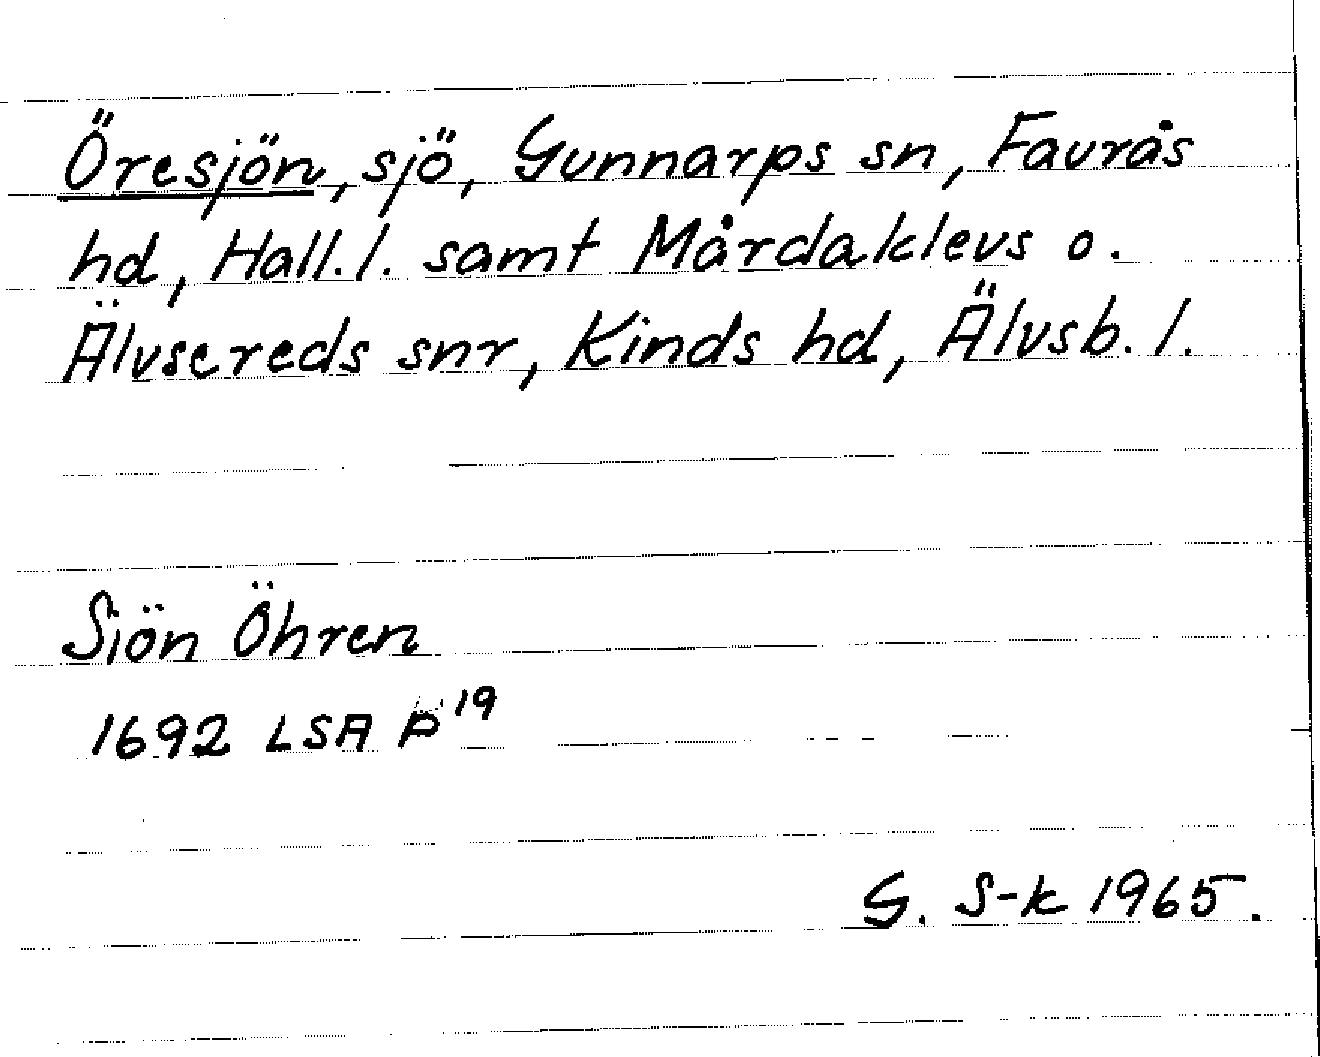 Öresjön, sjö, Gunnarps sn, Faurås
hd, Hall. l. samt Mårdaklevs o.
Älvsereds snr, Kinds hd, Älvsb. l.
Siön Öhren
1692 LSA P 19
G. S-k 1965.